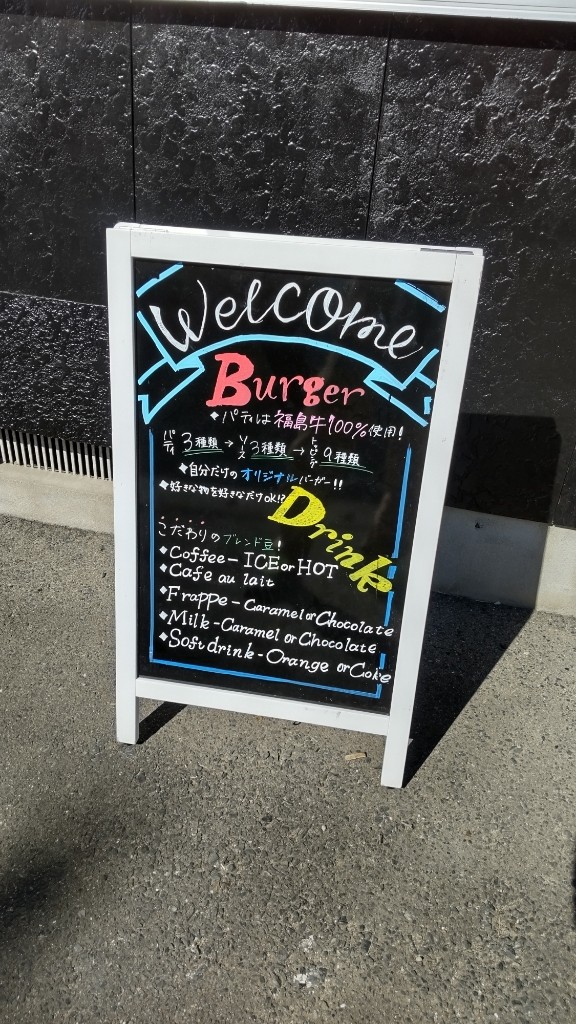 Welcome
Burger
◆パティは福島牛100%使用!
パティ3種類→ソース3種類→トッピング9種類
◆自分だけのオリジナルバーガー!!
◆好きな物を好きなだけok!?
Drink
こだわりのブレンド豆!
◆Coffee-ICE or HOT
◆Cafe au lait
◆Frappe-Caramel or Chocolate
◆Milk-Caramel or Chocolate
◆Soft drink-Orange or Coke